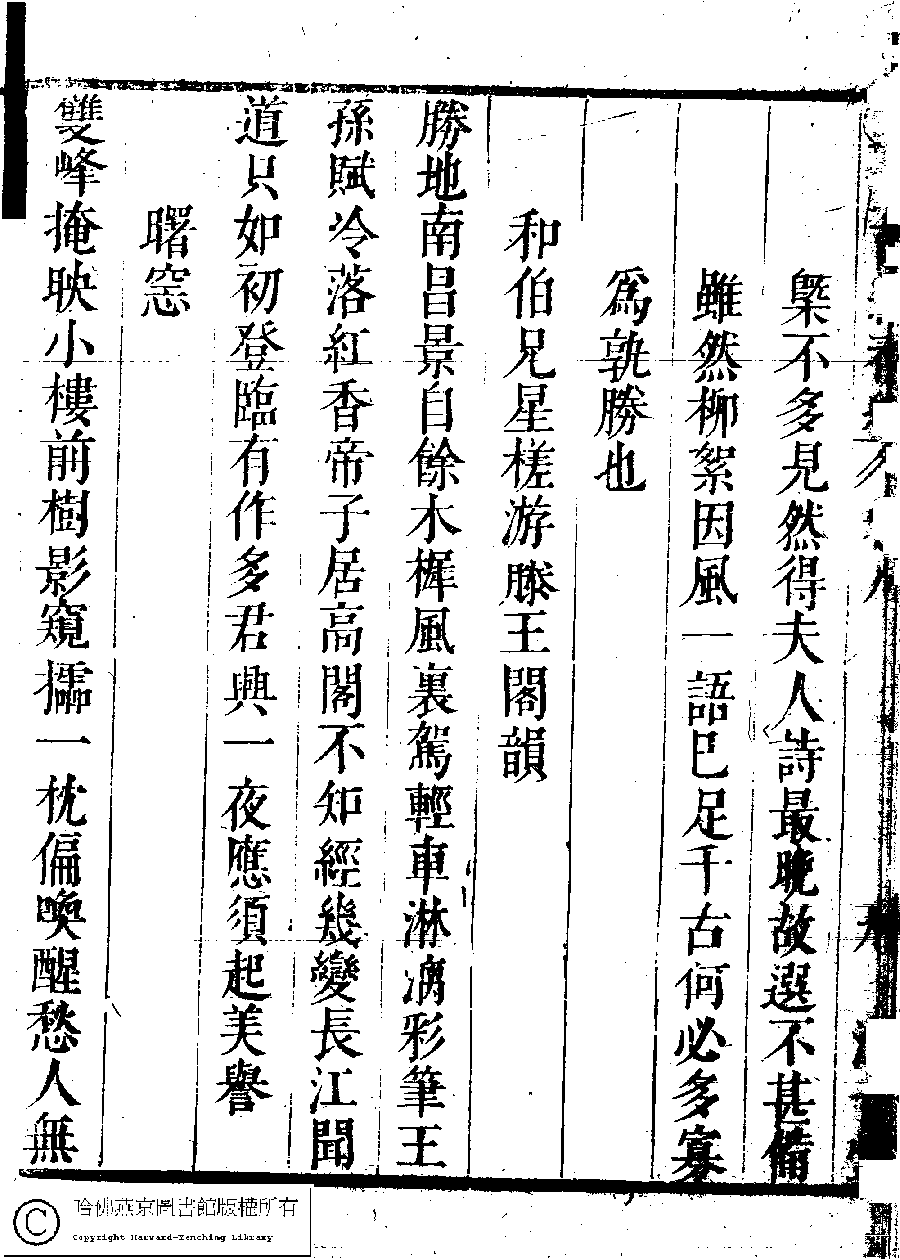 槩不多見然得夫人詩最晚故選不甚備
雖然柳絮因風一語巳足千古何必多寡
為孰勝也
和伯兄星槎游滕王閣韻
勝地南昌景自餘木樨風裏駕輕車淋漓彩筆王
孫賦冷落紅香帝子居高閣不知經幾變長江聞
道只如初登臨有作多君興一夜應須起美譽
曙窓
雙峰掩映小樓前樹影窺攂一枕偏喚醒愁人無
哈佛燕京圖書館版權所有
Copyright Harvard-Yenching Library